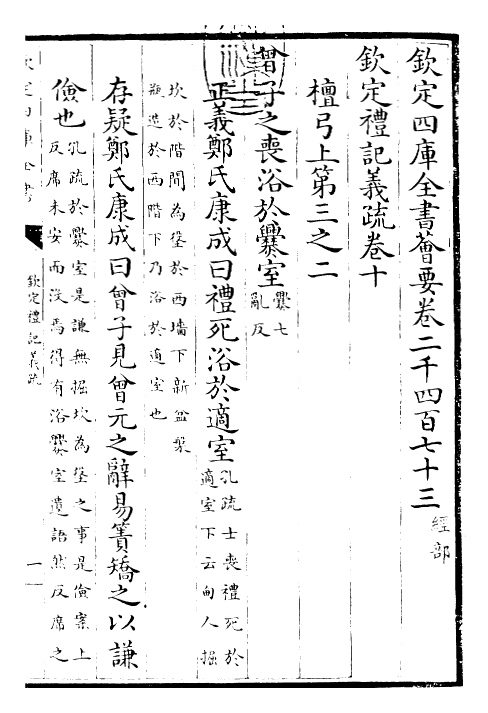 欽定四庫全書薈要卷二千四百七十三 經部
欽定禮記義疏卷十
檀弓上第三之二
曾子之喪浴於爨室 爨七亂反
正義鄭氏康成曰禮死浴於適室 孔疏士喪禮死於適室下云甸人掘
坎於階間為垼於西墻下新盆槃瓶造於西階下乃浴於適室也
存疑鄭氏康成曰曾子見曾元之辭易簀矯之以謙
儉也 孔疏於爨室是謙無掘坎為垼之事是儉案上反席未安而沒焉得有浴爨室遺語然反席之
欽定四庫全書
欽定禮記義疏
一